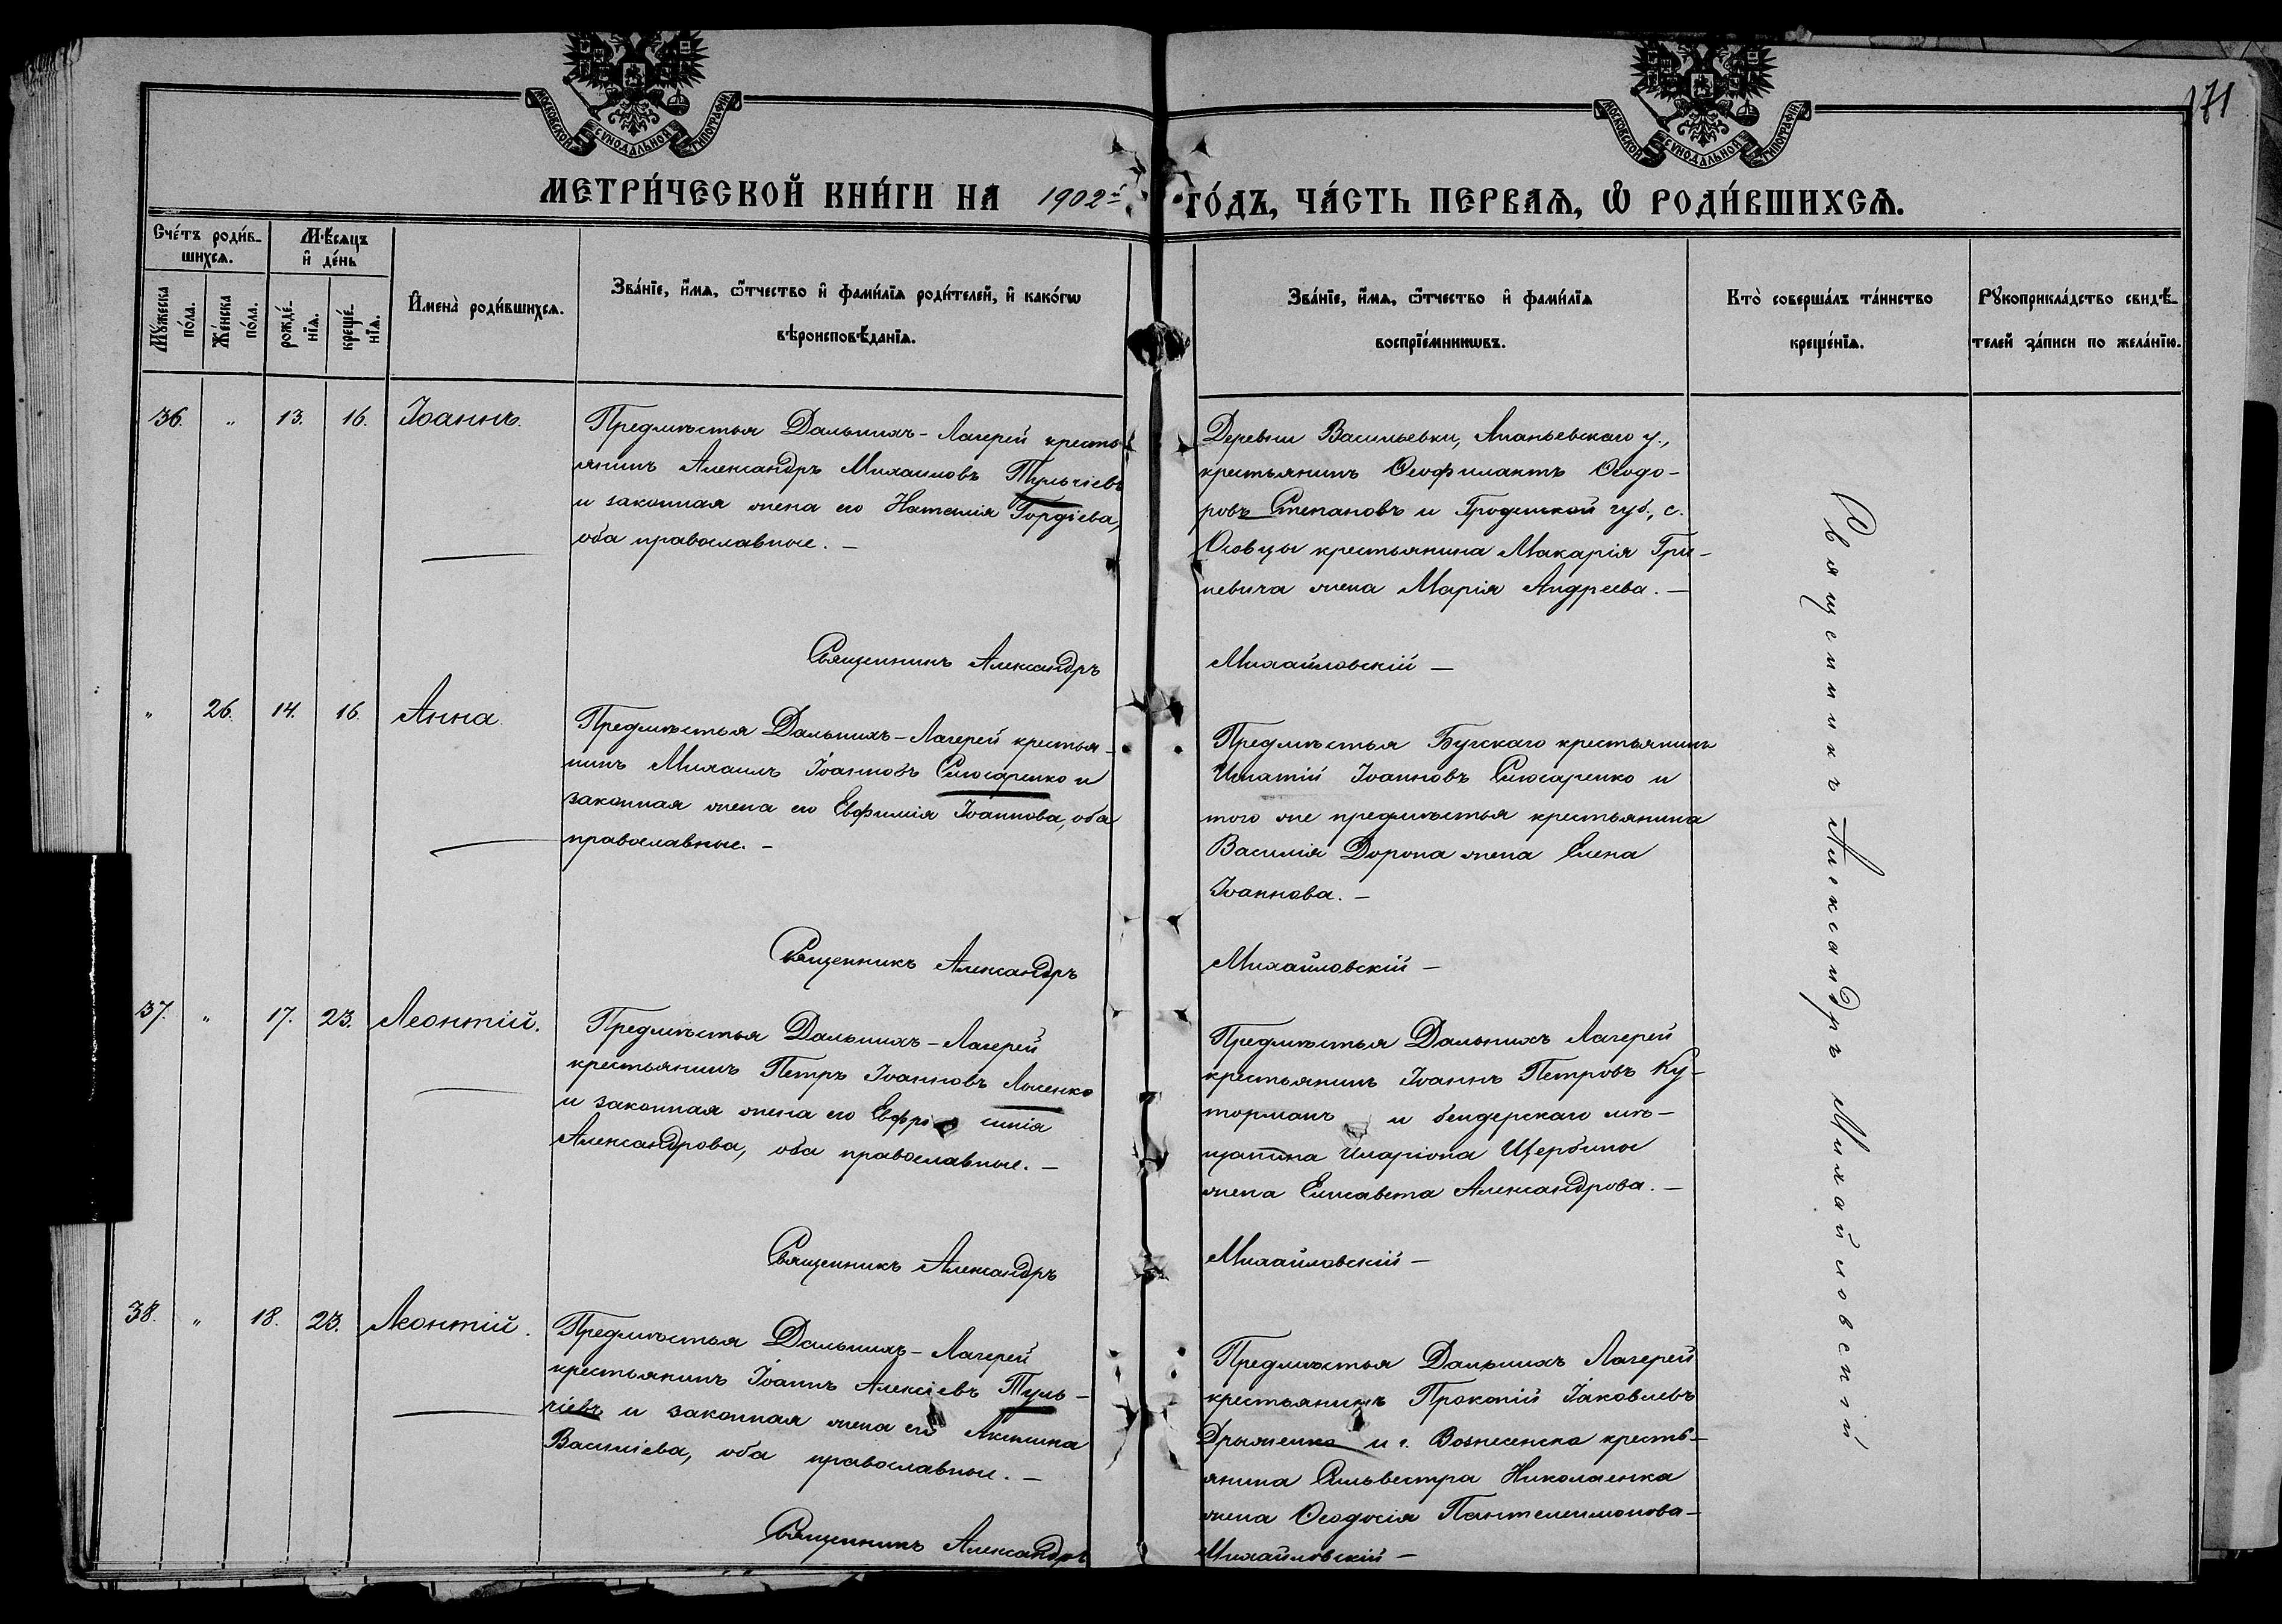 171
МОСКОВСКОЙ СѴНОДАЛЬНОЙ ТИПОГРАФІИ
МОСКОВСКОЙ СѴНОДАЛЬНОЙ ТИПОГРАФІИ
МЕТРИ́ЧЕСКОЙ КНИ́ГИ НА 1902й ГО́ДЪ, ЧА́СТЬ ПЕРВАѦ, Ѡ҆ РОДИ́ВШИХСѦ.
Сче́тъ роди́в-
шихсѧ.
Мѣ́сѧцъ
и҆ де́нь
Мꙋ́жеска
по́ла.
Же́нска
по́ла.
рожде́-
нїѧ.
креще́-
нїѧ.
И҆мена̀ роди́вшихсѧ.
Зва́нїе, и҆́мѧ, ѻ҆́тчество и҆ фами́лїѧ роди́телей, и҆ како́гѡ
вѣроисповѣ́данїѧ.
Зва́нїе, и҆́мѧ, ѻ҆́тчество и҆ фами́лїѧ
воспрїе́мникѡвъ.
Кто̀ соверша́лъ та́инство
креще́нїѧ.
Рꙋкоприкла́дство свидѣ́-
телей за́писи по жела́нїю.
36. " 13. 16. Іоаннъ.
Предмѣстья Дальнихъ-Лагерей кресть-
янинъ Александръ Михаиловъ Тульчіевъ
и законная жена его Наталія Гордіева,
оба православные. –
Деревни Васильевки, Ананьевскаго у.,
крестьянинъ Ѳеофилактъ Ѳеодо-
ровъ Степановъ и Гродненской губ., с.
Осовцы крестьянина Макарія Гри-
невича жена Марія Андреева. –
Священникъ Александръ Михайловскій –
" 26. 14. 16. Анна.
Предмѣстья Дальнихъ-Лагерей крестья-
нинъ Михаилъ Іоанновъ Слюсаренко и
законная жена его Евфимія Іоаннова, оба
православные. –
Предмѣстья Бугскаго крестьянинъ
Игнатій Іоанновъ Слюсаренко и
того же предмѣстья крестьянина
Василія Дорона жена Елена
Іоаннова. –
Священникъ Александръ Михайловскій –
37. " 17. 23. Леонтій.
Предмѣстья Дальнихъ-Лагерей
крестьянинъ Петръ Іоанновъ Лысенко
и законная жена его Евфросинія
Александрова, оба православные. –
Предмѣстья Дальнихъ Лагерей
крестьянинъ Іоаннъ Петровъ Ку-
торманъ и бендерскаго мѣ-
щанина Иларіона Щербины
жена Елисавета Александрова. –
Священникъ Александръ Михайловскій –
38. " 18. 23. Леонтій.
Предмѣстья Дальнихъ-Лагерей
крестьянинъ Іоаннъ Алексіевъ Туль-
чіевъ и законная жена его Аксинія
Василіева, оба православные. –
Предмѣстья Дальнихъ Лагерей
крестьянинъ Прокопій Іаковлевъ
Дрыженко и г. Вознесенска кресть-
янина Сильвестра Николаенка
жена Ѳеодосія Пантелеимонова –
Священникъ Александръ Михайловскій –
Священникъ Александръ Михайловскій